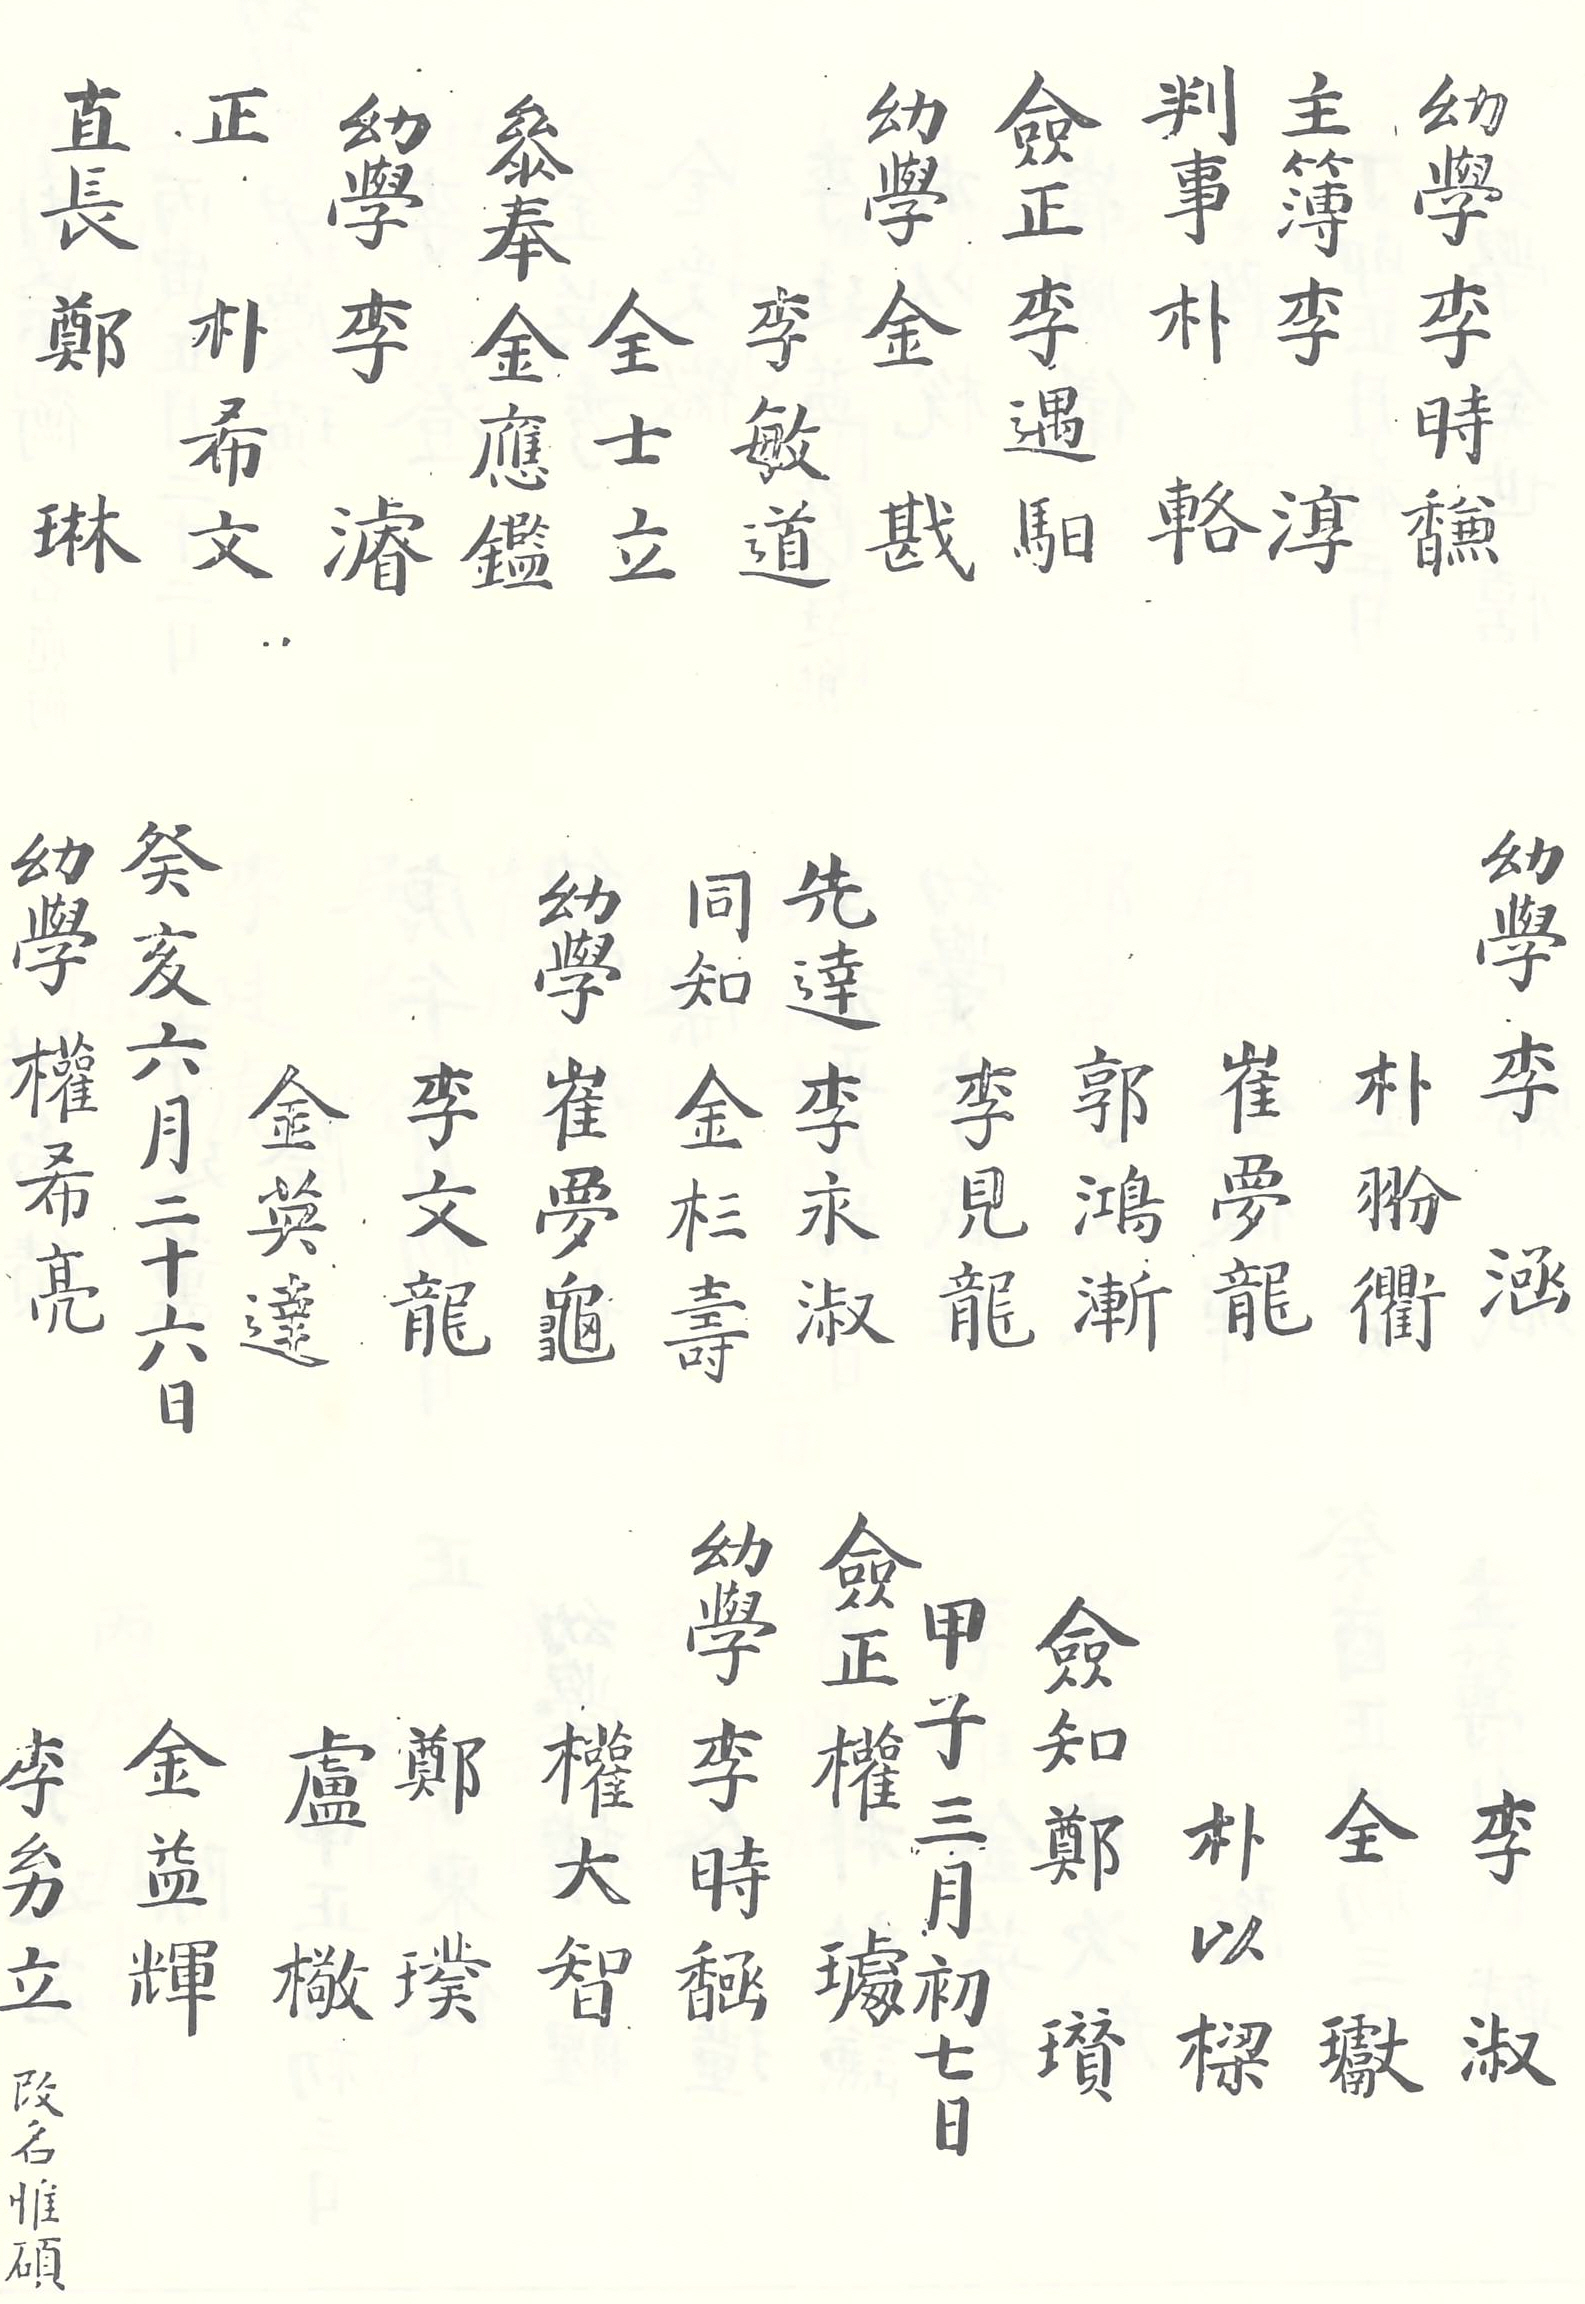 幼學 李時馦
主簿 李淳
判事 朴輅
僉正 李遇馹
幼學 金戡
李敏道
全士立
叅奉 金應鑑
幼學 李濬
正 朴希文
直長 鄭琳
幼學 李涵
朴翂衢
崔夢龍
郭鴻漸
李見龍
先達 李永淑
同知 金杉壽
幼學 崔夢龜
李文龍
金英達
癸亥六月二十六日
幼學 權希亮
李淑
全瓛
朴以樑
僉知 鄭瓚
甲子三月初七日
僉正 權璩
幼學 李時馣
權大智
鄭璞
盧橵
金益輝
李友立 改名惟碩